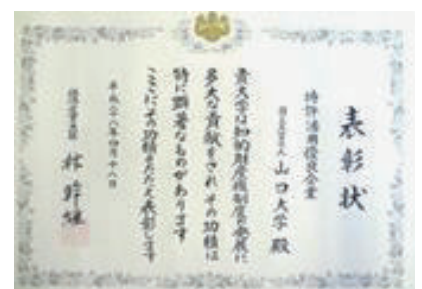 表彰状
特許活用優良企業
国立大学法人 山口大学 殿
貴大学は知的財産権制度の発展に
多大な貢献をされ その功績は
特に顕著なものがあります
ここにその功績をたたえ表彰します
平成二八年四月十八日
経済産業大臣 林幹雄